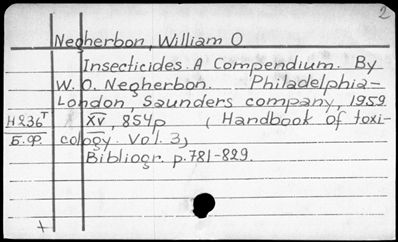 2
Negherbon, William O
Insecticides. A Compendium. By
W. O. Negherbon. Philadelphia-
London, Saunders company, 1959
H236т XV, 854p (Handbook of toxi-
Б.Ф. cology. Vol. 3)
Bibliogr. p. 781-829.
+